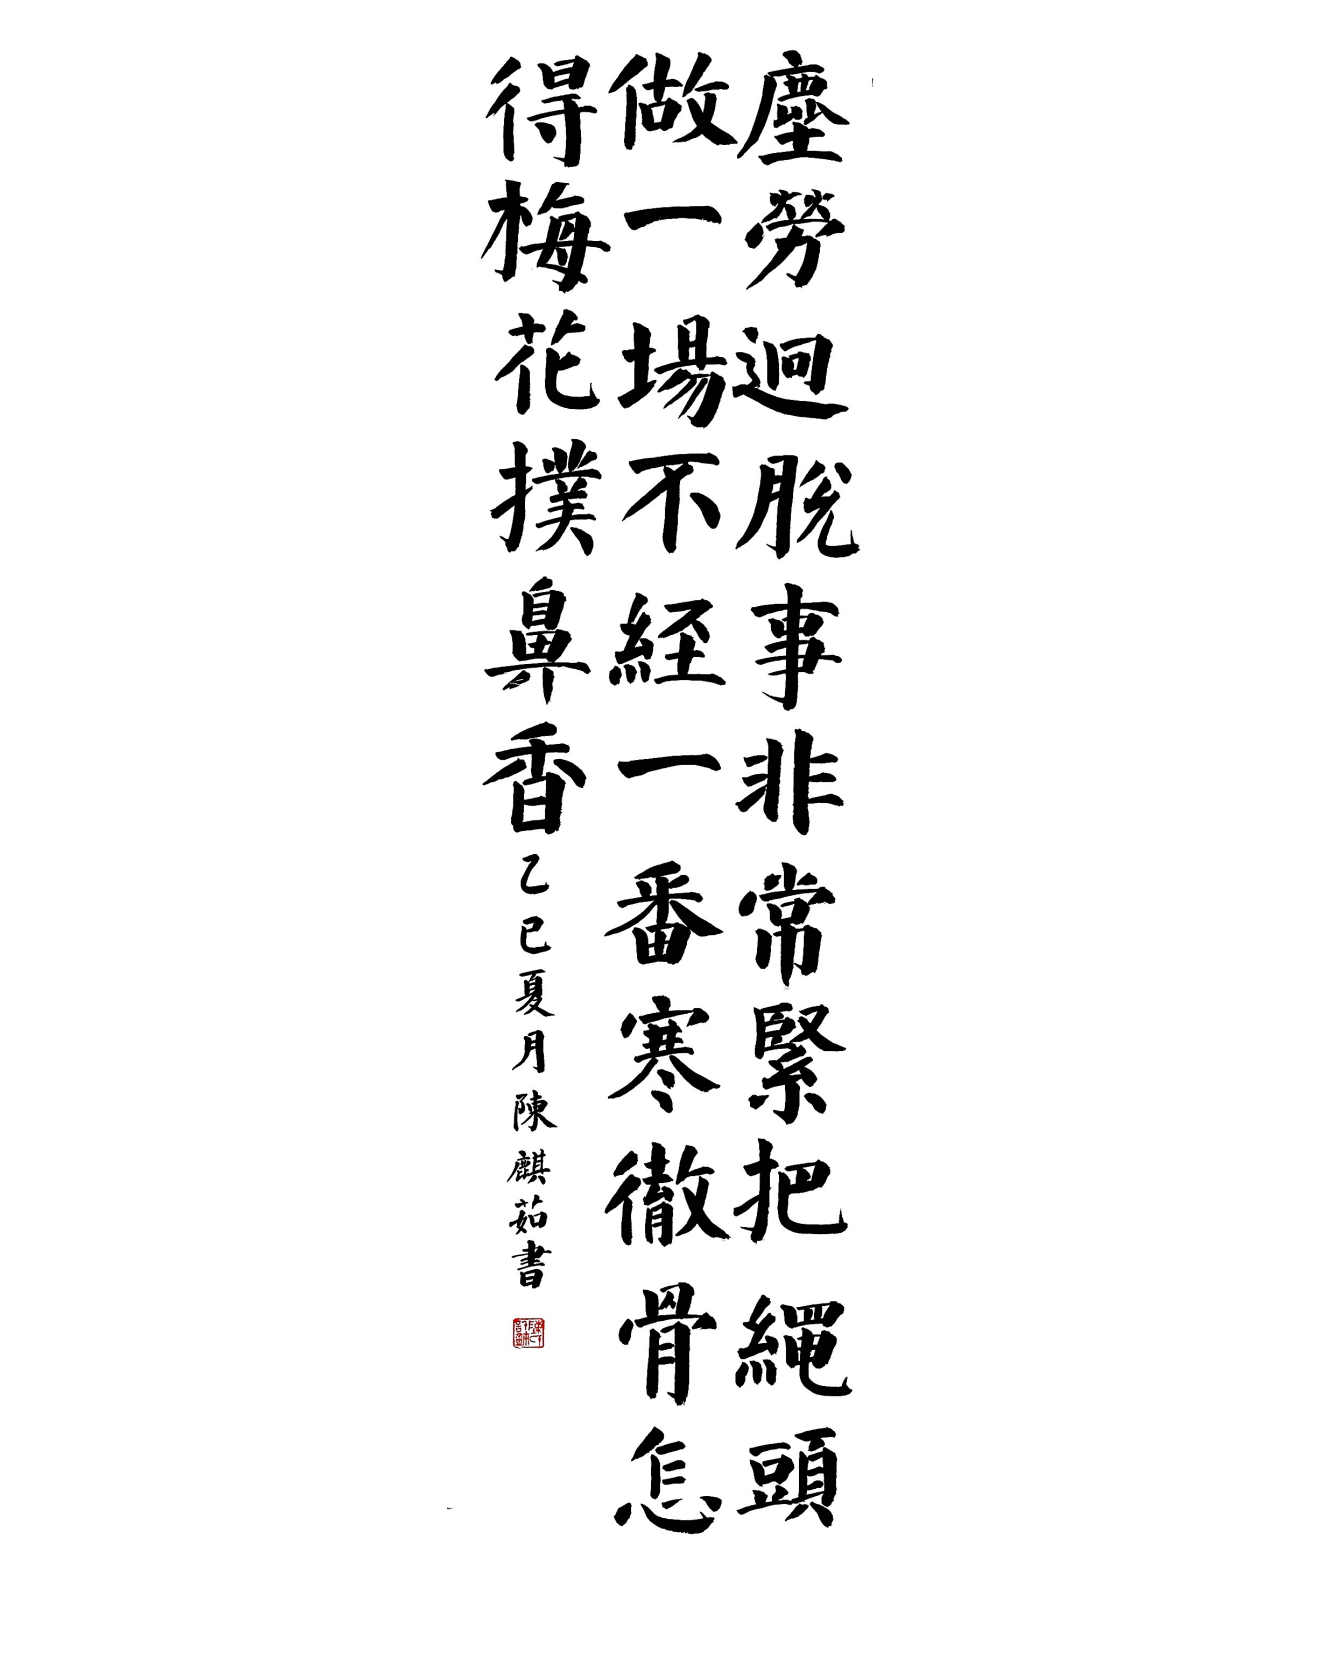 塵勞迥脫事非常緊把繩頭
做一場不經一番寒徹骨怎
得梅花撲鼻香
乙巳夏月陳麒茹書